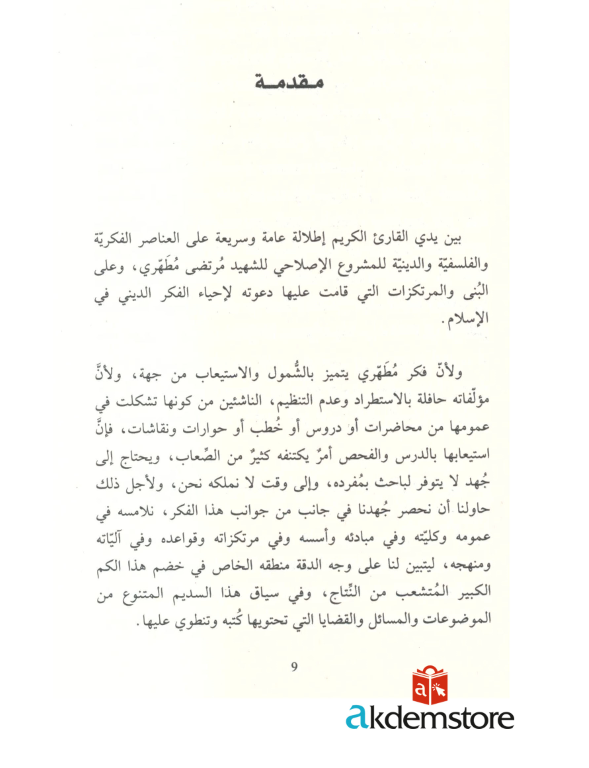 مـقدمـة
بين يدي القارئ الكريم إطلالة عامة وسريعة على العناصر الفكريّة
والفلسفيّة والدينيّة للمشروع الإصلاحي للشهيد مُرتضى مُطَهّري، وعلى
البُنى والمرتكزات التي قامت عليها دعوته لإحياء الفكر الديني في
الإسلام.
ولأنّ فكر مُطَهّري يتميز بالشُّمول والاستيعاب من جهة، ولأنَّ
مؤلّفاته حافلة بالاستطراد وعدم التنظيم، الناشئين من كونها تشكلت في
عمومها من محاضرات أو دروس أو خُطب أو حوارات ونقاشات، فإنَّ
استيعابها بالدرس والفحص أمرٌ يكتنفه كثيرٌ من الصِّعاب، ويحتاج إلى
جُهد لا يتوفر لباحث بمُفرده، وإلى وقت لا نملكه نحن، ولأجل ذلك
حاولنا أن نحصر جُهدنا في جانب من جوانب هذا الفكر، نلامسه في
عمومه وكليّته وفي مبادئه وأسسه وفي مرتكزاته وقواعده وفي آليّاته
ومنهجه، ليتبين لنا على وجه الدقة منطقه الخاص في خضم هذا الكم
الكبير المُتشعب من النِّتاج، وفي سياق هذا السديم المتنوع من
الموضوعات والمسائل والقضايا التي تحتويها كُتبه وتنطوي عليها.
9
a
akdemstore